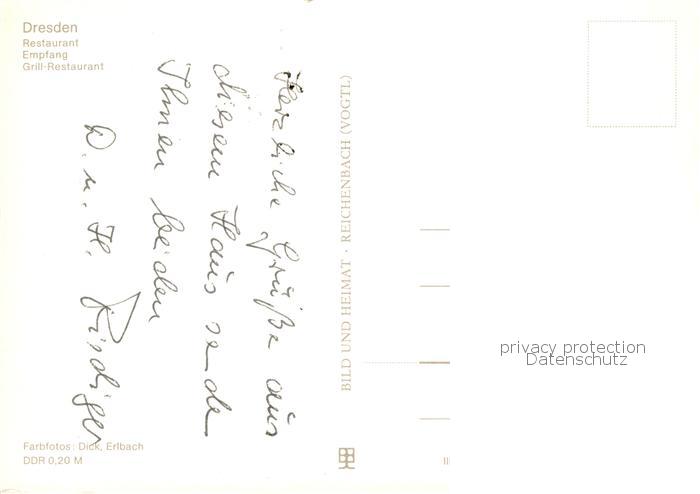 Dresden
Restaurant
Empfang
Grill-Restaurant
Herzliche Grüße aus
diesem Haus sende
Ihnen beiden
W. u. H.
Farbfotos: Dick, Erlbach
DDR 0,20 M
BILD UND HEIMAT · REICHENBACH (VOGTL)
privacy protection
Datenschutz